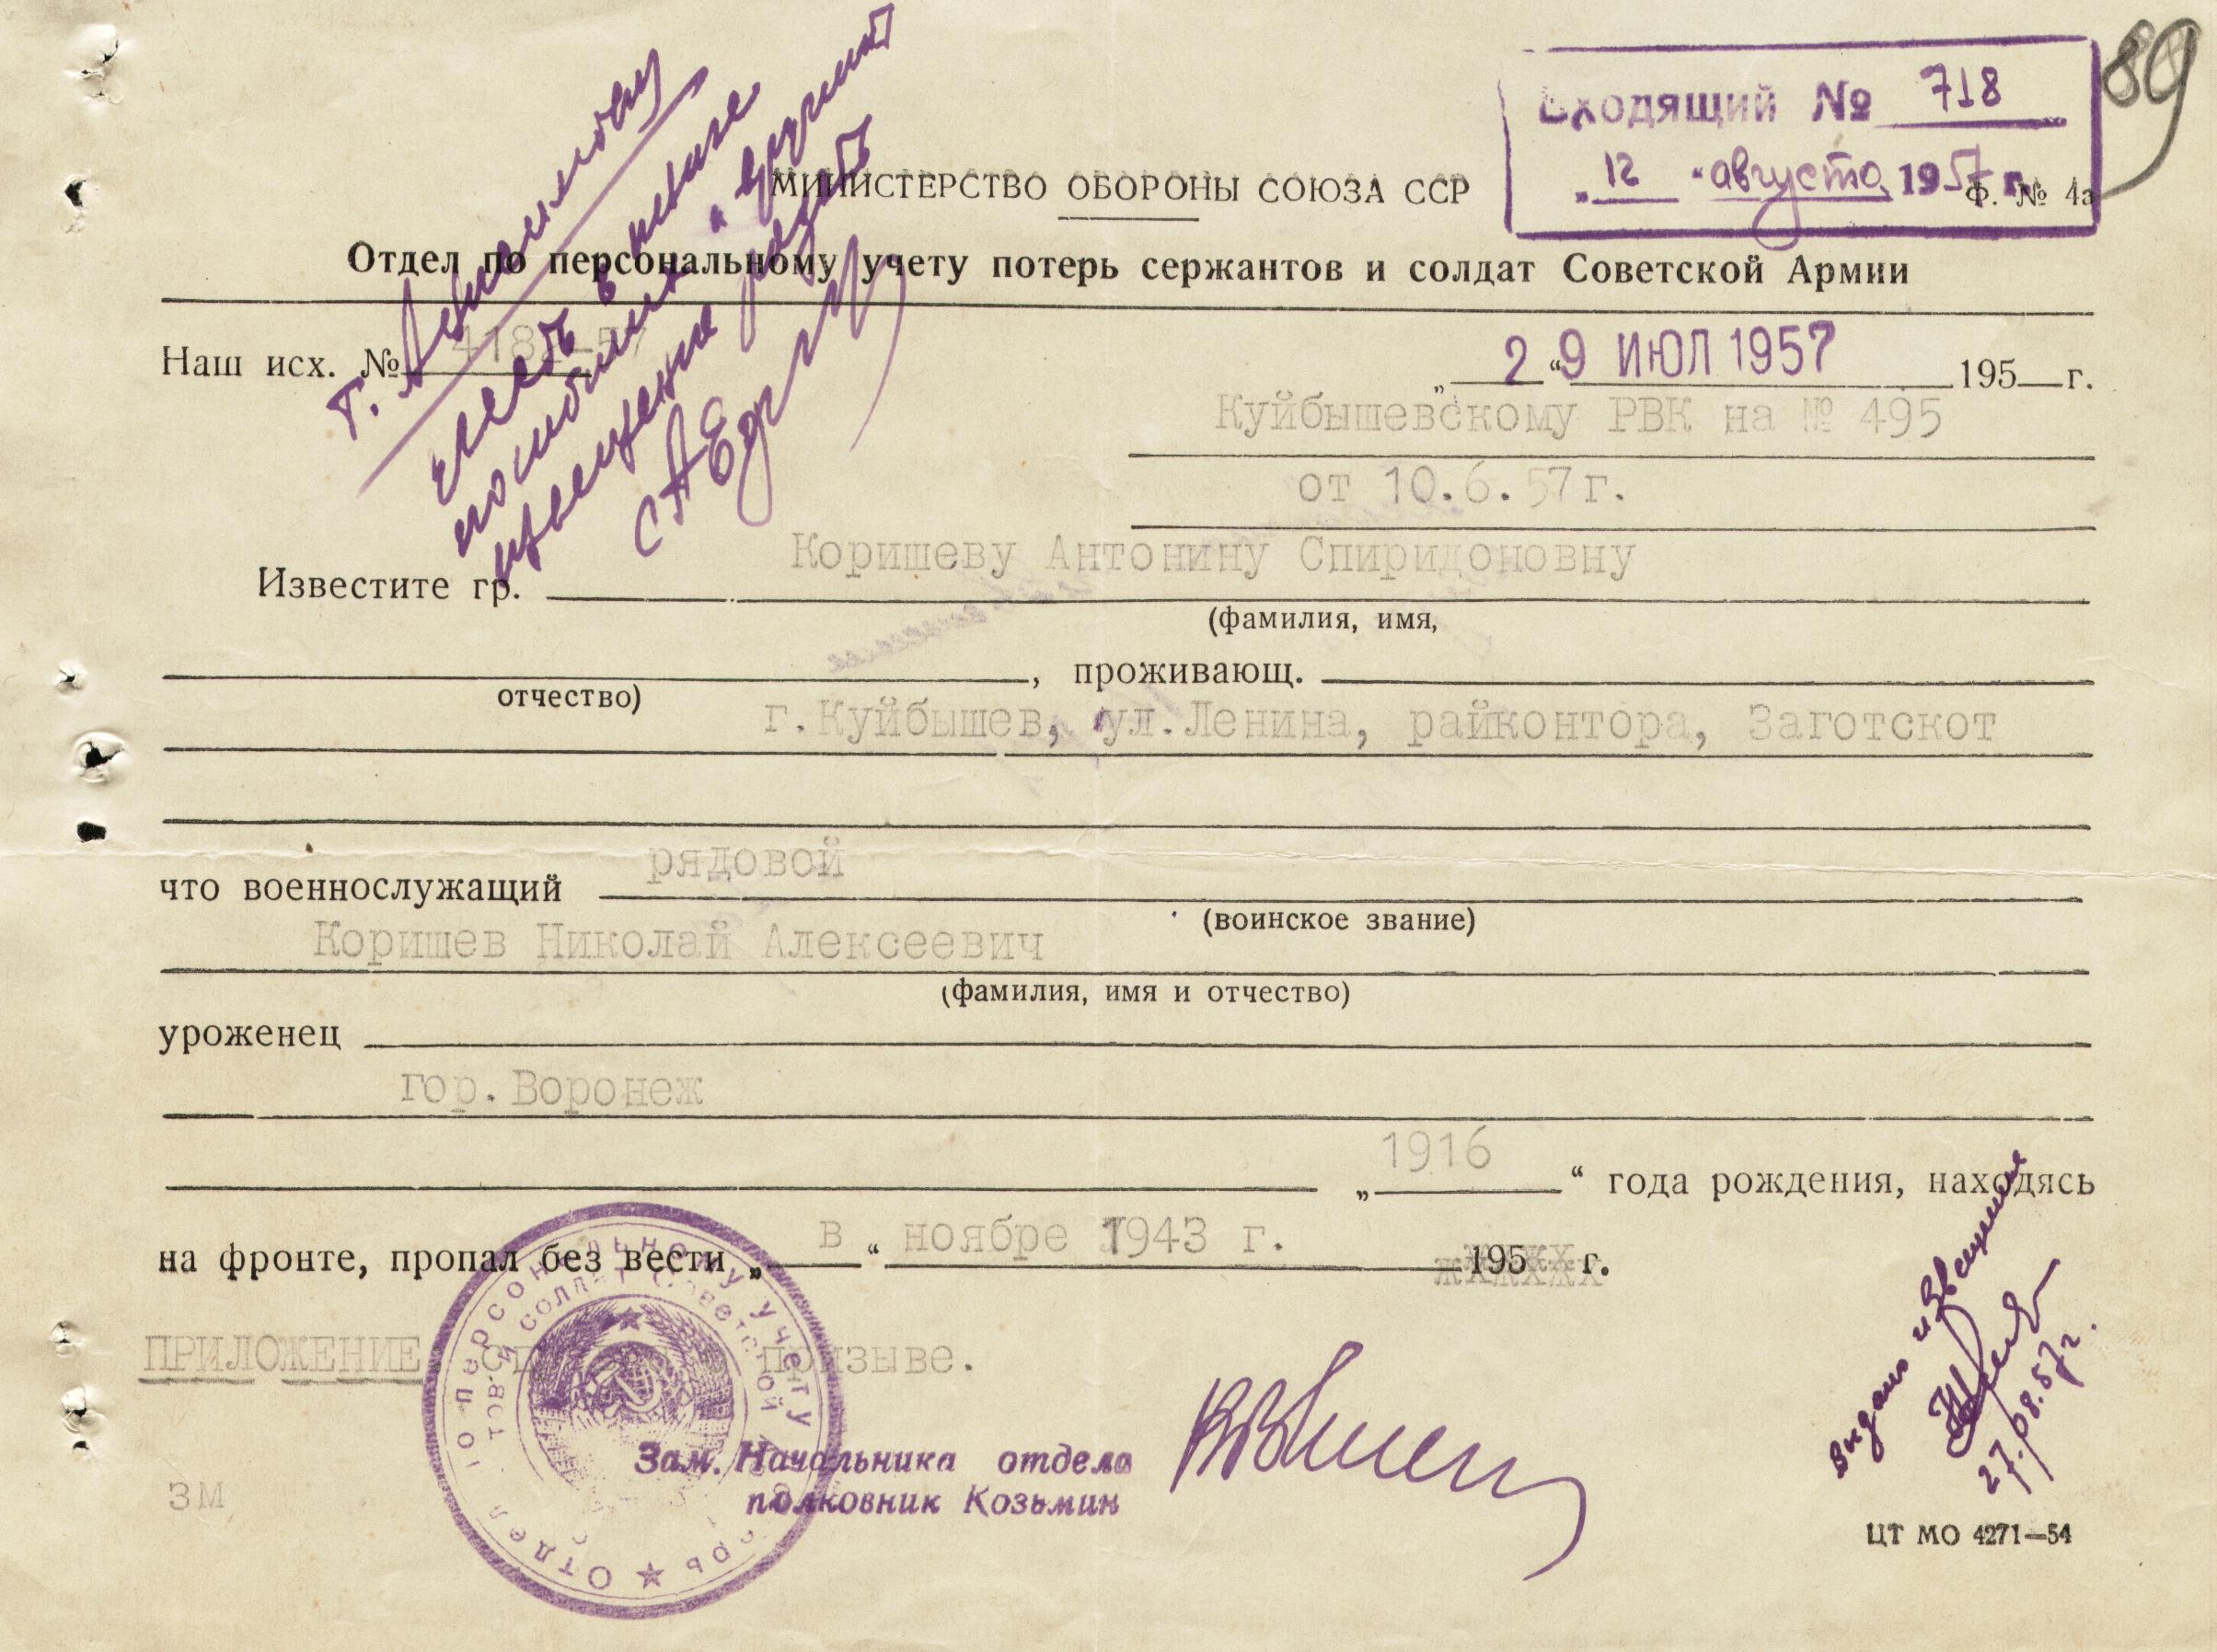 89
Входящий № 718
„ 12 “ августа 1957 г.
МИНИСТЕРСТВО ОБОРОНЫ СОЮЗА ССР
Ф. № 4а
Отдел по персональному учету потерь сержантов и солдат Советской Армии
Наш исх. № 4182-57
„29 ИЮЛ 1957 195 г.
Куйбышевскому РВК на № 495
от 10.6.57г.
Известите гр. Коришеву Антонину Спиридоновну
(фамилия, имя,
, проживающ.
отчество)
г.Куйбышев, ул.Ленина, райконтора, Заготскот
что военнослужащий рядовой
(воинское звание)
Коришев Николай Алексеевич
(фамилия, имя и отчество)
уроженец
гор.Воронеж
„ 1916 “ года рождения, находясь
на фронте, пропал без вести „ в “ ноябре 1943 г. 195 г.
ПРИЛОЖЕНИЕ призыве.
Зам. Начальника отдела
полковник Козьмин
зм
Выдано извещение
27.08.57г.
ЦТ МО 4271—54